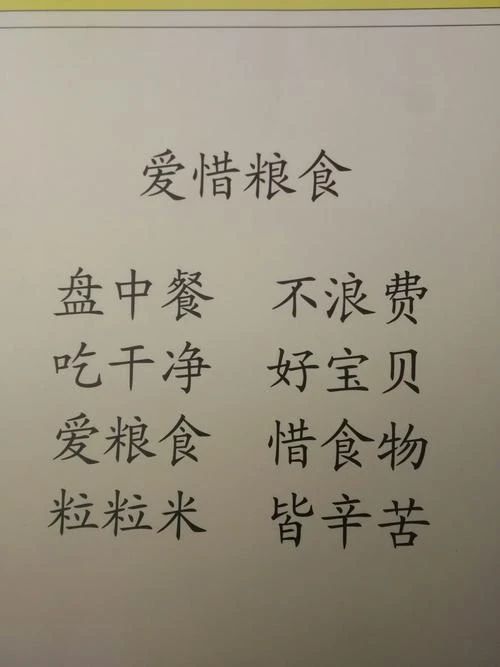 爱惜粮食
盘中餐 不浪费
吃干净 好宝贝
爱粮食 惜食物
粒粒米 皆辛苦